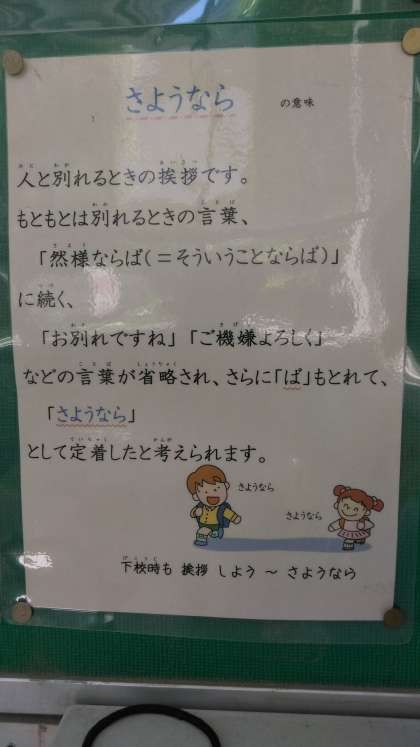 さようなら の意味
人と別れるときの挨拶です。
もともとは別れるときの言葉、
「然様ならば(＝そういうことならば)」
に続く、
「お別れですね」「ご機嫌よろしく」
などの言葉が省略され、さらに「ば」もとれて、
「さようなら」
として定着したと考えられます。
さようなら
さようなら
下校時も 挨拶 しよう ～ さようなら